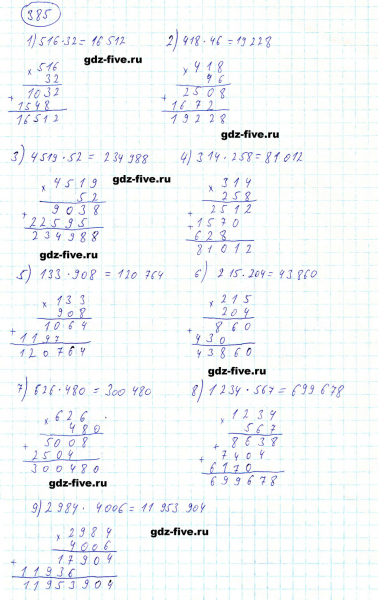 385
1) 516·32 = 16512
2) 418·46 = 19228
gdz-five.ru
gdz-five.ru
× 516
32
+ 1032
1548
16512
× 418
46
+ 2508
1672
19228
gdz-five.ru
3) 4519·52 = 234988
4) 314·258 = 81012
gdz-five.ru
× 4519
52
+ 9038
22595
234988
× 314
258
+ 2512
+ 1570
628
81012
gdz-five.ru
5) 133·908 = 120764
6) 215·204 = 43860
× 133
908
+ 1064
1197
120764
× 215
204
+ 860
430
43860
gdz-five.ru
7) 626·480 = 300480
8) 1234·567 = 699678
× 626
480
+ 5008
2504
300480
× 1234
567
+ 8638
+ 7404
6170
699678
gdz-five.ru
gdz-five.ru
9) 2984·4006 = 11953904
gdz-five.ru
× 2984
4006
+ 17904
11936
11953904